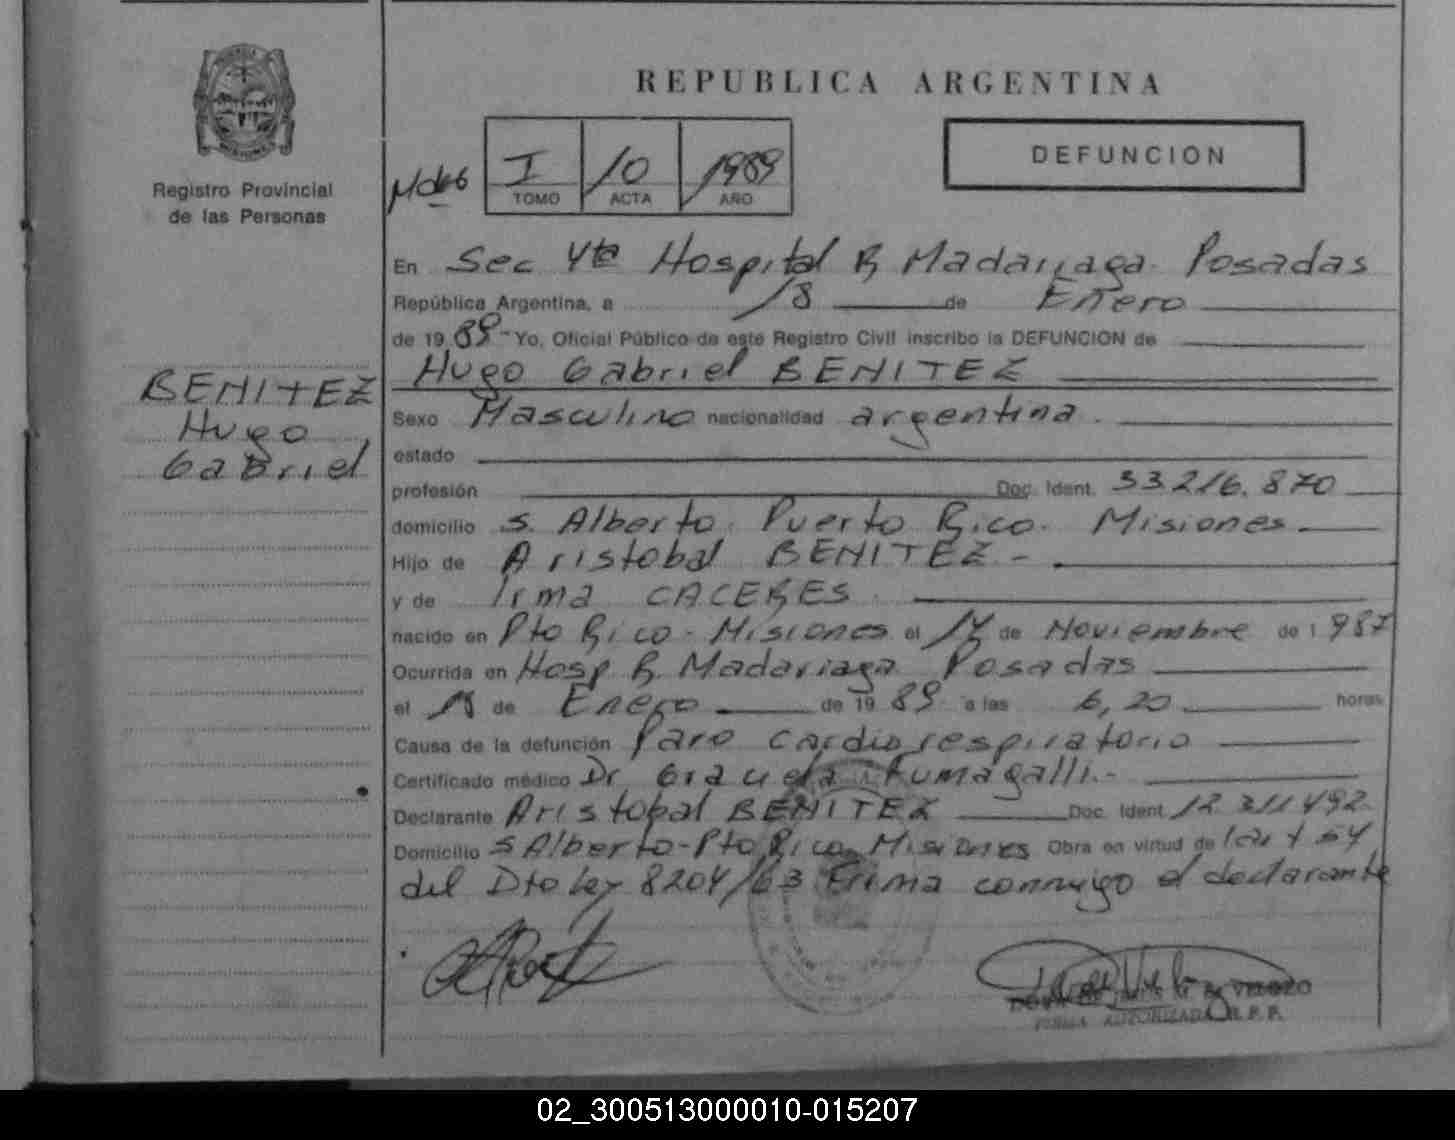 REPUBLICA ARGENTINA
DEFUNCION
I 10 1989
TOMO ACTA AÑO
Registro Provincial
de las Personas
En Sec 4ta Hospital R Madariaga Posadas
República Argentina, a 18 de Enero
de 1989 - Yo, Oficial Público de este Registro Civil inscribo la DEFUNCION de
Hugo Gabriel BENITEZ
BENITEZ
Hugo
Gabriel
Sexo Masculino nacionalidad argentina.
estado
profesión Doc. Ident. 33.216.870
domicilio S. Alberto. Puerto Rico. Misiones
Hijo de Aristobal BENITEZ -
y de Irma CACERES
nacido en Pto Rico - Misiones el 14 de Noviembre de 1987
Ocurrida en Hosp R. Madariaga Posadas
el de Enero de 1989 a las 6,20 horas
Causa de la defunción Paro cardiorespiratorio
Certificado médico Dr Graciela Fumagalli.-
Declarante Aristobal BENITEZ Doc. Ident 12.311.492
Domicilio S Alberto - Pto Rico Misiones Obra en virtud de
del Dto Ley 8204/63 Firma conmigo el declarante
VELOZO
FIRMA AUTORIZADA R. P. P.
02_300513000010-015207